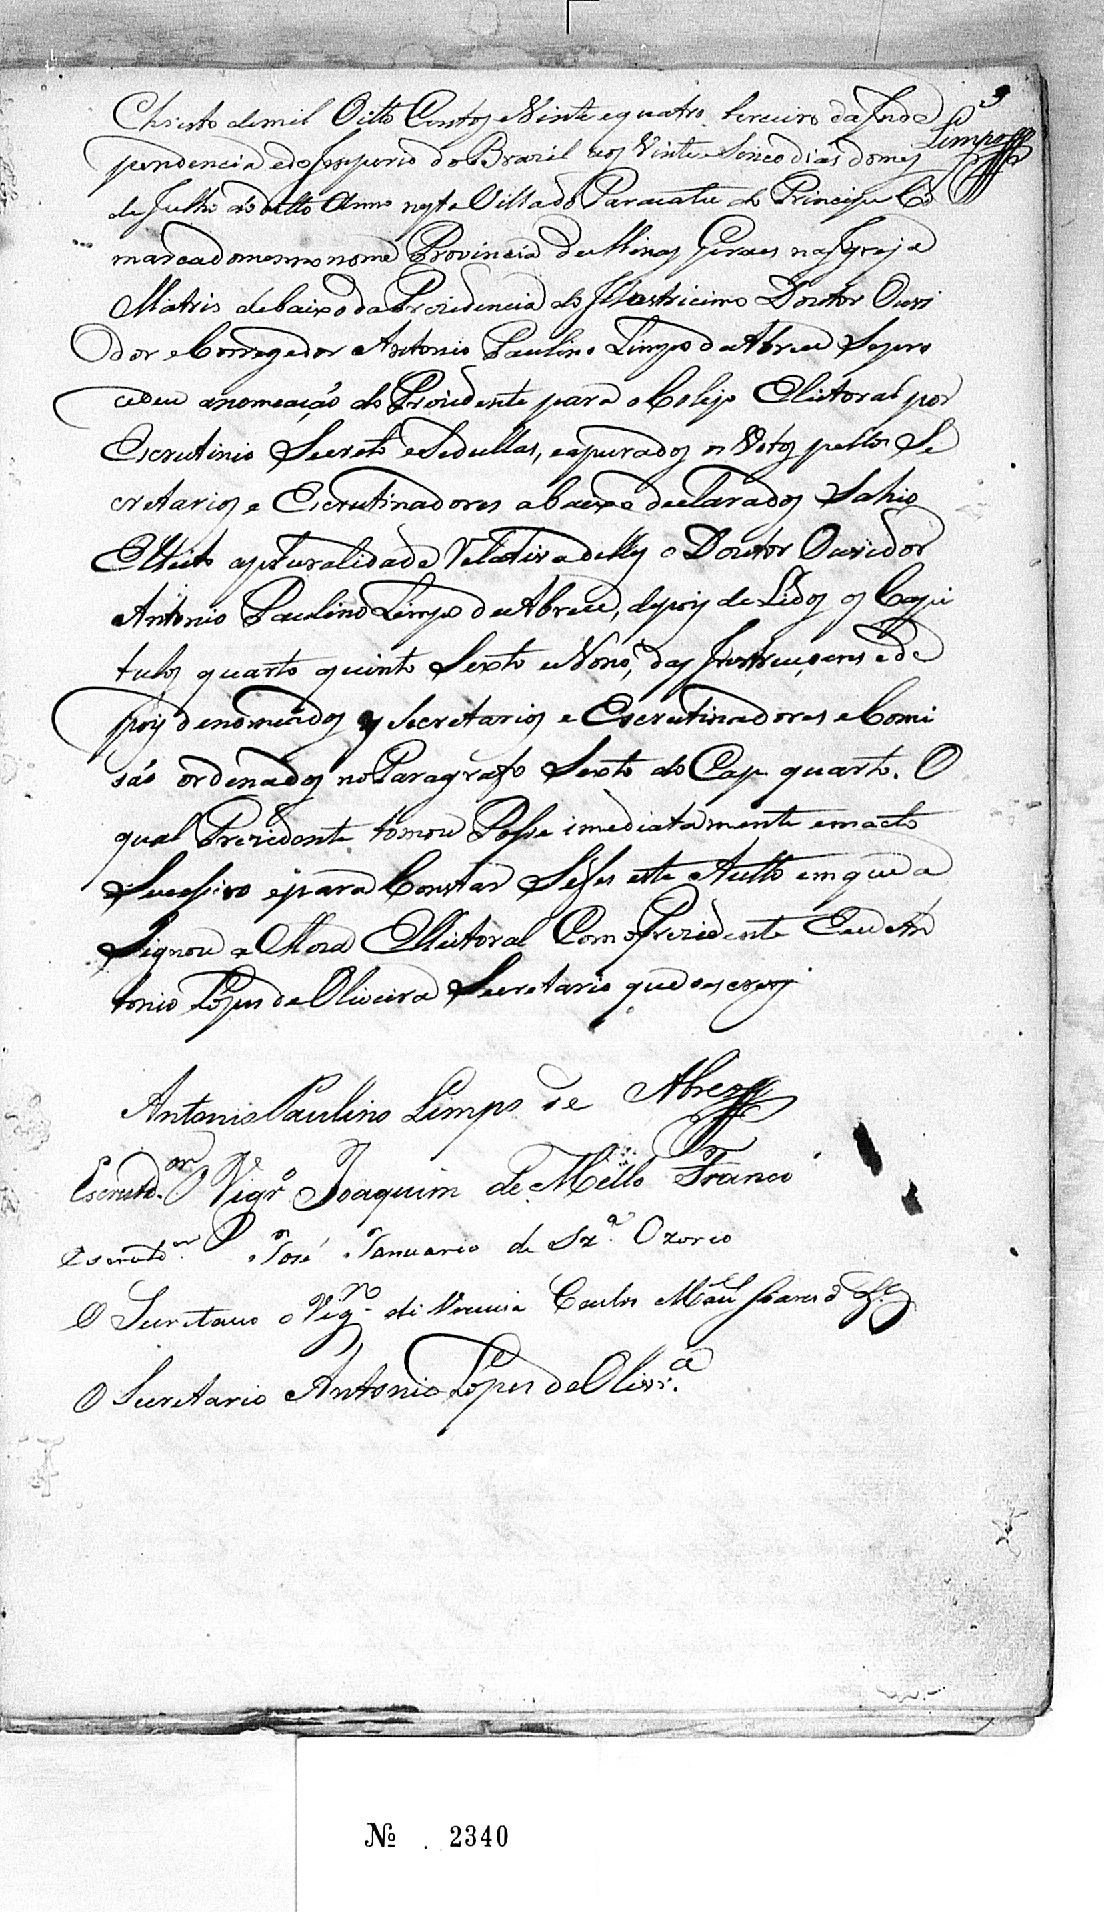 3
Limpo
Christo de mil Oito Centos e Vinte e quatro, terceiro da Inde
pendencia e do Imperio do Brazil aos Vinte e Sinco dias do mes
de Julho do dito Anno nesta Villa do Paracatu do Principe Co
marca do mesmo nome Provincia de Minas Geraes na Igreja
Matris debaixo da Prezidencia do Illustricimo Doutor Ouvi
dor e Corregedor Antonio Paulino Limpo de Abreu Se pro
cedeu a nomeação do Prezidente para o Colejo Elleitoral por
Escrutinio Secreto e Sedullas, e apurados os Votos pellos Se
cretarios e Escrutinadores abaixo declarados Sahio
Elleito a pluralidade Relativa delles o Doutor Ouvidor
Antonio Paulino Limpo de Abreu, depois de Lidos os Capi
tulos quarto quinto Sexto e Nono, das Instruçoens e de
pois de nomeados os Secretarios e Escrutinadores e Comi
são ordenados no Paragrafo Sexto do Cap. quarto. O
qual Prezidente tomou Posse imediatamente em acto
Sucessivo e para Constar Se fes este Autto em que a
Signou a Meza Elleitoral Com o Prezidente Eu An
tonio Lopes de Oliveira Secretario que o escrevy
Antonio Paulino Limpo de Abreu
Escrutd.or O Vigr.o Joaquim de Mello Franco
Escrutd.or P.e José Januario de Sz.a Ozorio
O Secretario o Vig.ro de Carlos Mael Soares
O Secretario Antonio Lopes de Olivr.a
№ . 2340